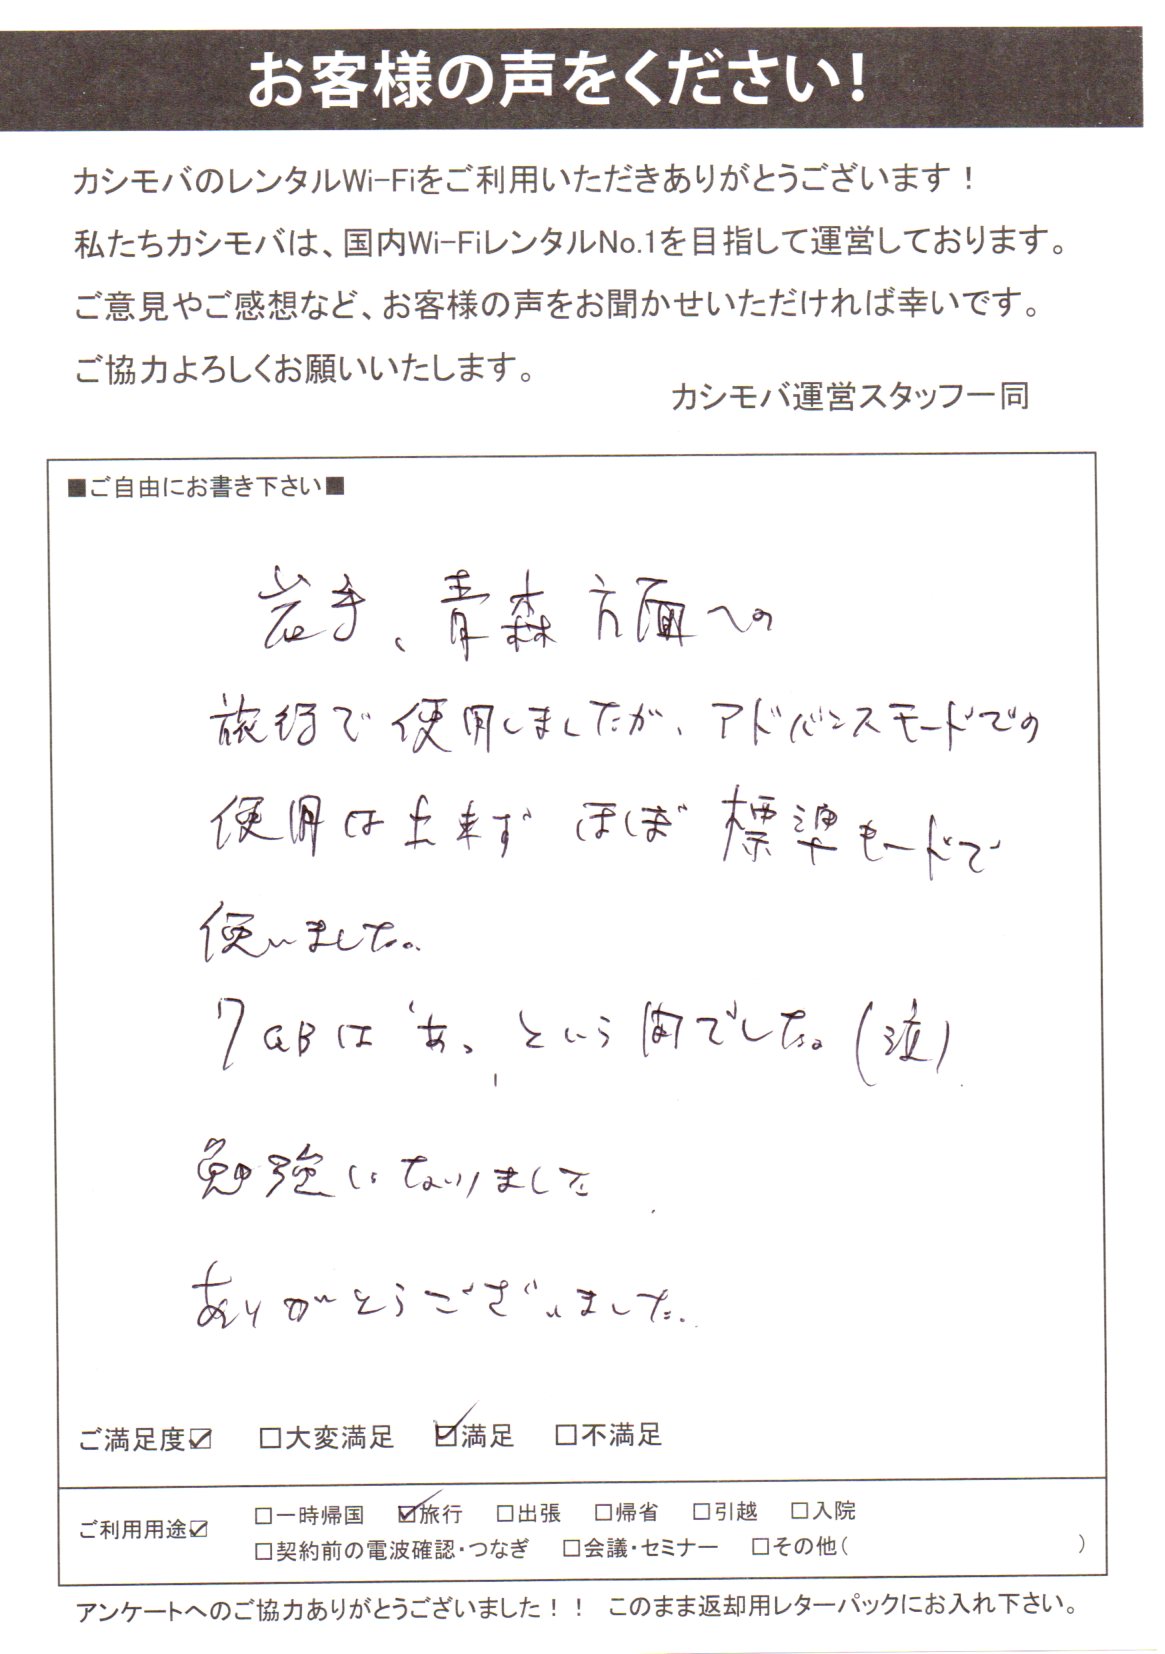 お客様の声をください!
カシモバのレンタルWi-Fiをご利用いただきありがとうございます！
私たちカシモバは、国内Wi-FiレンタルNo.1を目指して運営しております。
ご意見やご感想など、お客様の声をお聞かせいただければ幸いです。
ご協力よろしくお願いいたします。
カシモバ運営スタッフ一同
■ご自由にお書き下さい■
岩手、青森方面への
旅行で使用しましたが、アドバンスモードでの
使用は出来ず ほぼ標準モードで
使いました。
7GBは‘あっ,という間でした。(泣)
勉強になりました.
ありがとうございました.
ご満足度☑ □大変満足 ☑満足 □不満足
ご利用用途☑ □一時帰国 ☑旅行 □出張 □帰省 □引越 □入院
□契約前の電波確認・つなぎ □会議・セミナー □その他( )
アンケートへのご協力ありがとうございました！！ このまま返却用レターパックにお入れ下さい。